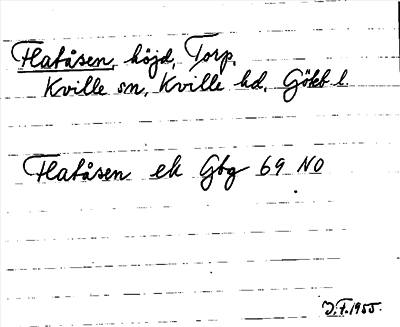 Flatåsen, höjd, Torp,
Kville sn, Kville hd, Göteb l.
Flatåsen ek Gbg 69 NO
J.F. 1955.